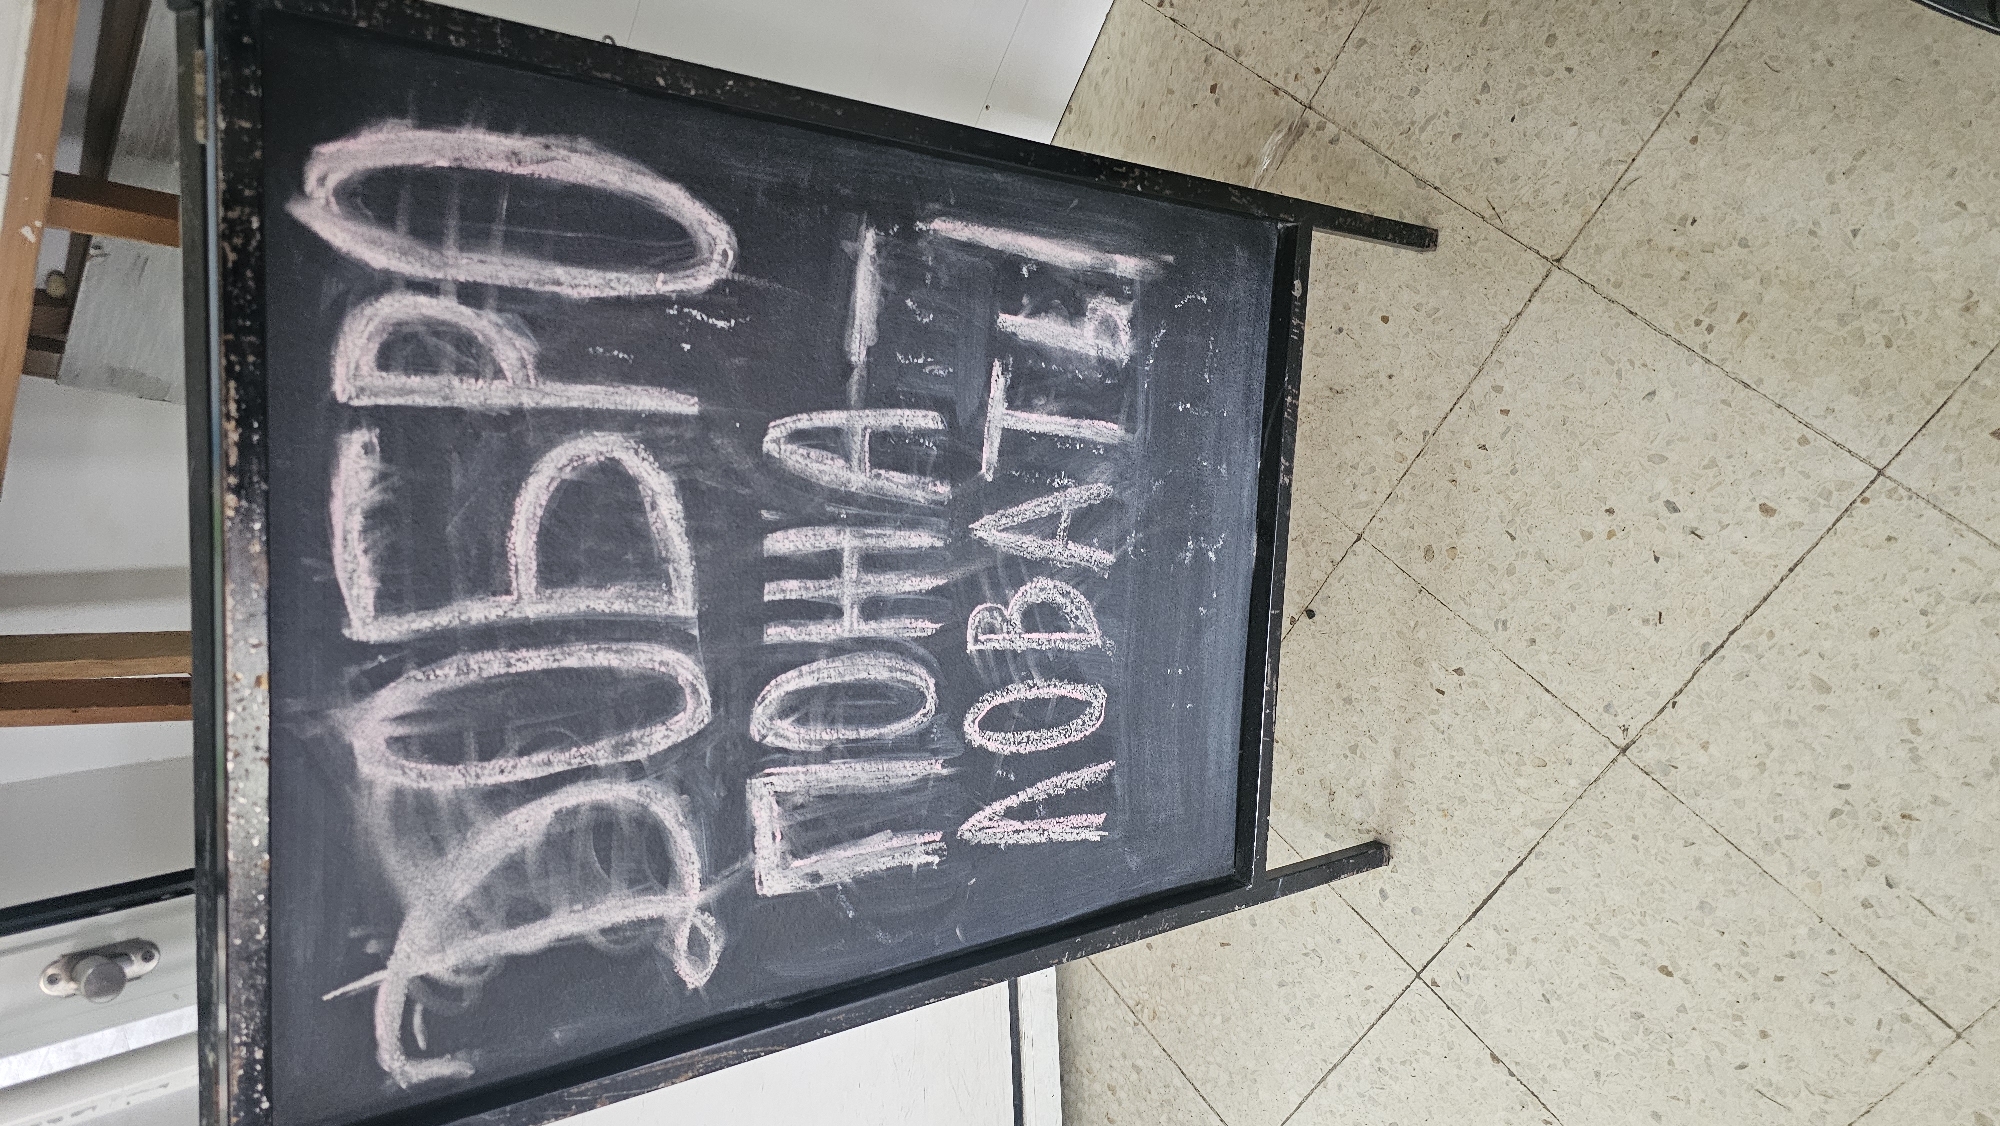 ДОБРО
ПОЖА-
ЛОВАТЬ!